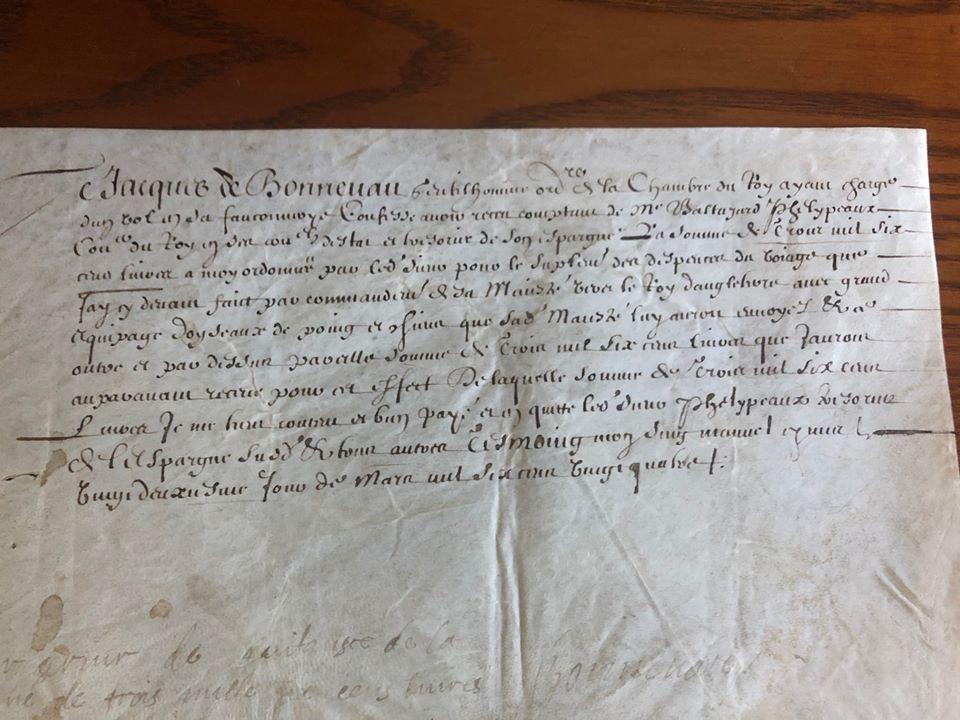 Jacques de Bonneuau gentilhomme ord.re de la Chambre du Roy ayant charge
dun vol en sa fauconnerye Confesse auoir receu comptant de Me Baltazard Phelypeaux
Con.er du Roy en ses con.ls destat et tresorier de son espargne La somme de Trois mil six
cens liures a moy ordonnée par led. sieur pour le suplem.t des despences du voiage que
Jay cy deuant faict par commandem.t de sa Maiesté vers le Roy dangleterre auec grand
equipage doyseaux de poing et que sad. Maiesté luy auroit enuoyés & ce
outre et par dessus pareille somme de Trois mil six cens liures que Jaurois
auparauant receue pour cet effect De laquelle somme de Trois mil six cens
liures Je me tiens content et bien payé et en quitte led. sieur Phelypeaux tresorier
de lespargne susd. & tous autres Tesmoing mon sing manuel cy mis le
vingt deuxiesme Jour de Mars mil six cens vingt quatre
de quitance de la
de trois mille six cens liures Bonneuau